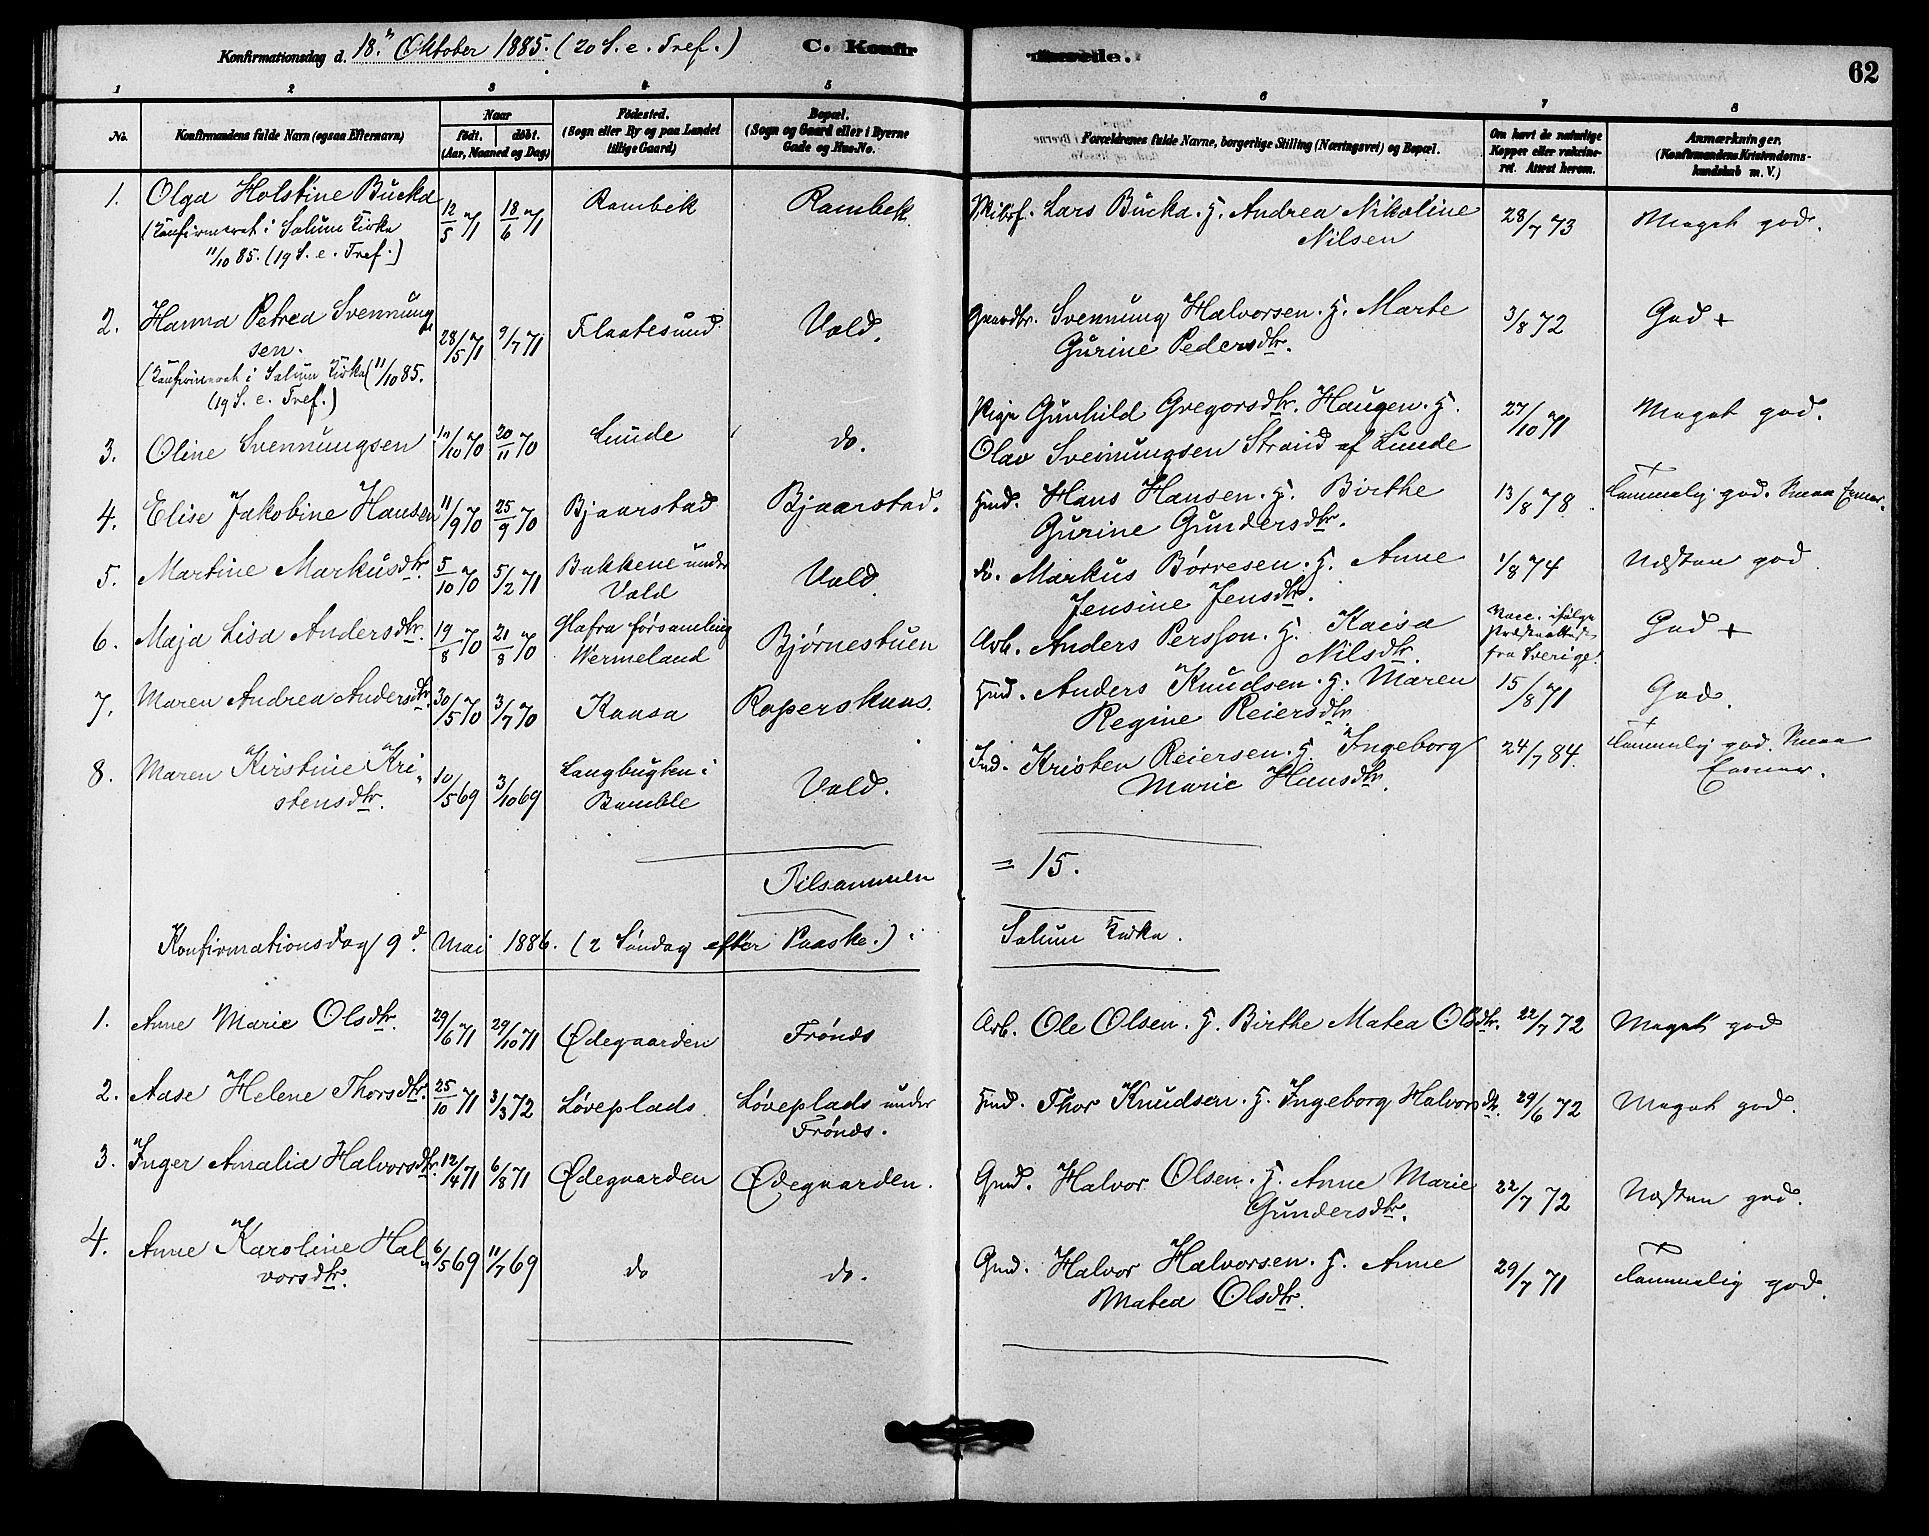 Konfirmationsdag d. 18.de Oktober 1885. (20 S. e. Tref.) C. Konfirmerede. 62
1 2 3 4 5 6 7 8
No. Konfirmandens fulde Navn (ogsaa Efternavn) Naar født. døbt. (Aar, Maaned og Dag) Fødested. (Sogn eller By og paa Landet tillige Gaard) Bopæl. (Sogn og Gaard eller i Byerne Gade og Hus-No. Forældrenes fulde Navne, borgerlige Stilling (Næringsvei) og Bopæl. Om havt de naturlige Kopper eller vakcineret. Attest herom. Anmærkninger. (Konfirmandens Kristendomskundskab m. V.)
1. Olga Holstine Bucka 12/5 71 18/6 71 Rambek Rambek Lars Bucka. H. Andrea Nikoline 28/7 73 Meget god.
(Konfirmeret i Solum Kirke Nilsen
11/10 85. (19 S. e. Tref.)
2. Hanna Petrea Svennung 28/5 71 9/7 71 Flaatesund Vold. Gaardbr. Svennung Halvorsen. H. Marte 3/8 72 God +
sen. Gurine Pedersdtr.
(Konfirmeret i Solum Kirke (11/10 85.
(19 S. e. Tref.)
3. Oline Svennungsen /10 70 20/11 70 Lunde do. Pige Gunhild Gregorsdtr. Haugen. H. 27/10 71 Meget god.
Olav Sveinungsen Strand af Lunde
4. Elise Jakobine Hansen 11/9 70 25/9 70 Bjaarstad Bjaarstad. Hmd. Hans Hansen. H. Birthe 13/8 78. Temmelig god. Smaa Evner.
Gurine Gundersdtr.
5. Martine Markusdtr. 5/10 70 5/2 71 Bakkene under Vold. do. Markus Børresen. H. Anne 1/8 74 Næsten god
Vold Jensine Jensdtr.
6. Maja Lisa Andersdtr. 19/8 70 21/8 70 Hafra församling Bjørnestuen Arb. Anders Persson. H. Kaisa Vacc. ifølge God +
Wermeland Nilsdtr. Præsteattest
fra Sverige.
7. Maren Andrea Andersdtr. 30/5 70 3/7 70 Kaasa Roperskaas. Hmd. Anders Knudsen. H. Maren 15/8 71 God.
Regine Reiersdtr.
8. Maren Kirstine Kri- 10/5 69 3/10 69 Langbugten i Vold. Ind. Kristen Reiersen. H. Ingeborg 24/7 84. Temmelig god. Smaa
stensdtr. Bamble Marie Hansdtr. Evner.
Tilsammen = 15.
Konfirmationsdag 9.d Mai 1886. (2 Søndag efter Paaske.) Solum Kirke.
1. Anne Marie Olsdtr. 29/6 71 29/10 71 Ødegaarden Frønds Arb. Ole Olsen. H. Birthe Matea Olsdtr. 22/7 72 Meget god
2. Aase Helene Thorsdtr. 25/10 71 3/3 72 Løveplads. Løveplads under Hmd. Thor Knudsen. H. Ingeborg Halvorsdtr. 29/6 72 Meget god.
Frønds.
3. Inger Amalia Halvorsdtr. 12/4 71 6/8 71 Ødegaarden Ødegaarden. Gmd. Halvor Olsen. H. Anne Marie 22/7 72 Næsten god.
Gundersdtr.
4. Anne Karoline Hal- 6/5 69 11/7 69 do do. Gmd. Halvor Halvorsen. H. Anne 29/7 71 Temmelig god.
vorsdtr. Matea Olsdtr.